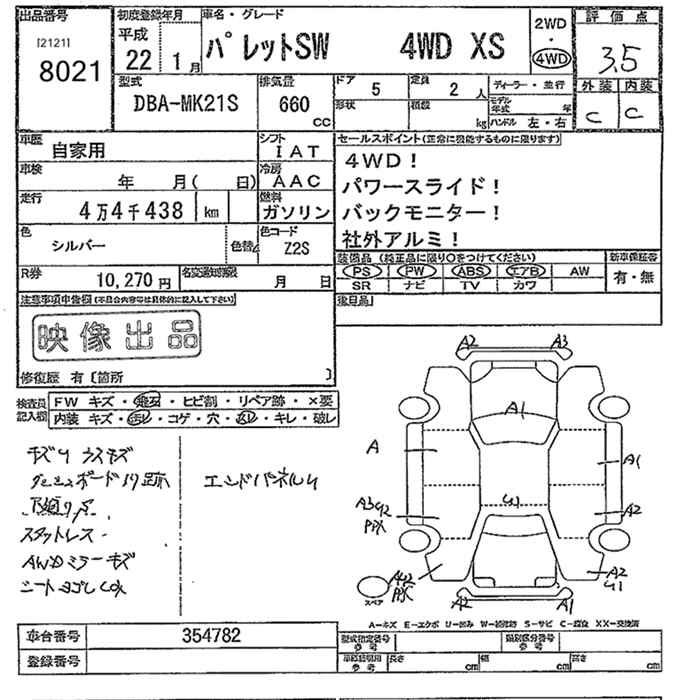 出品番号
[2121]
8021
初度登録年月
平成
22 1月
車名・グレード
パレットSW 4WD XS
2WD
・
4WD
評価点
3.5
外装 内装
C C
型式
DBA-MK21S
排気量
660
CC
ドア 5
形状
定員 2 人
積載 kg
ディーラー・並行
モデル年式 年
ハンドル 左・右
車歴
自家用
シフト
IAT
車検
年 月( 日)
冷房
AAC
走行
4万4千438 km
燃料
ガソリン
色
シルバー
色替
色コード
Z2S
R券
10,270円
名変通知期限
月 日
セールスポイント(正常に機能するものに限ります)
4WD!
パワースライド!
バックモニター!
社外アルミ!
装備品(純正品に限り○をつけてください)
PS PW ABS エアB AW
SR ナビ TV カワ
新車保証書
有・無
後日品
注意事項申告欄(不具合内容等は具体的に記入して下さい)
映像出品
修復歴 有〔箇所 〕
検査員記入欄
FW キズ・飛石・ヒビ割・リペア跡・×要
内装 キズ・汚レ・コゲ・穴・ ・キレ・破レ
スタットレス
AWDミラーキズ
A2 A3
A1
A
A1
A2
A2
A2 A1
スペア
A―キズ E―エクボ U―凹み W―補修跡 S―サビ C―腐食 XX―交換済
車台番号 354782
登録番号
型式指定番号
参考
類別区分番号
参考
長さ cm
幅 cm
高さ cm